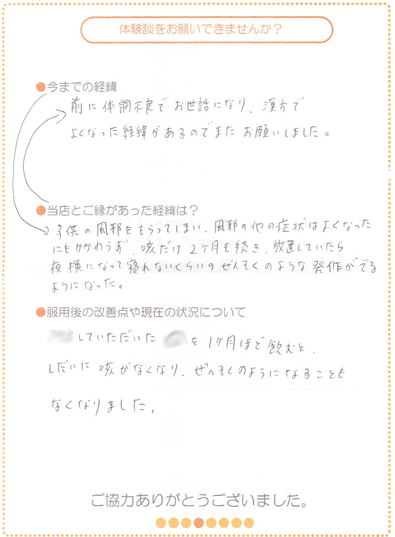 体験談をお願いできませんか?
●今までの経緯
前に体調不良でお世話になり、漢方で
よくなった経緯があるのでまたお願いしました。
●当店とご縁があった経緯は?
子供の風邪をもらってしまい、風邪の他の症状はよくなった
にもかかわらず、咳だけ2ヶ月も続き、放置していたら
夜横になって寝れないくらいのぜんそくのような発作がでる
ようになった。
●服用後の改善点や現在の状況について
していただいた を1ヶ月ほど飲むと、
しだいに咳がなくなり、ぜんそくのようになることも
なくなりました。
ご協力ありがとうございました。